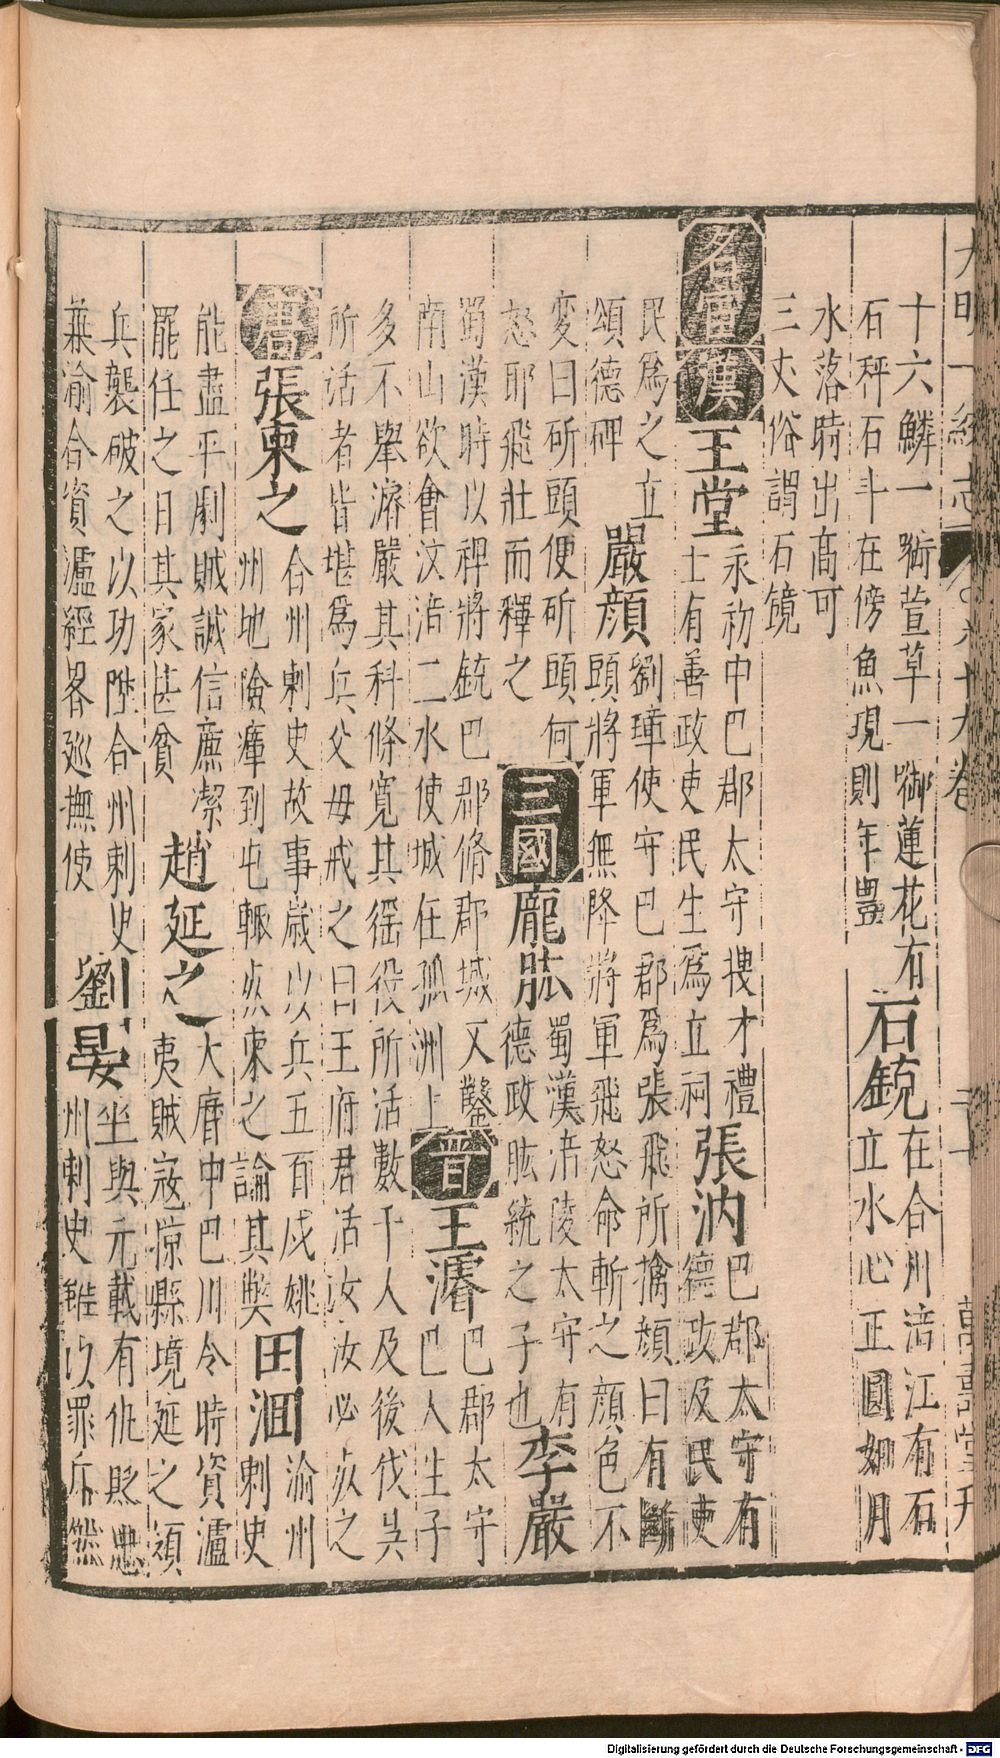 大明一統志 卷六十九卷 二十一 萬壽堂刊
十六鱗一啣萱草一啣蓮花有
石秤石斗在傍魚現則年豐
石鏡
在合州涪江有石
立水心正圓如月
水落時出高可
三丈俗謂石镜
名宦
漢
王堂
永初中巴郡太守搜才禮
士有善政吏民生爲立祠
張汭
巴郡太守有
德政及民吏
民爲之立
頌德碑
嚴顏
劉璋使守巴郡爲張飛所擒顏曰有斷
頭將軍無降將軍飛怒命斬之顏色不
變曰斫頭便斫頭何
怒耶飛壯而釋之
三國
龐肱
蜀漢涪陵太守有
德政肱統之子也
李嚴
蜀漢時以裨將銃巴郡脩郡城又鑿
南山欲會汶涪二水使城在孤洲上
晉
王濬
巴郡太守
巴人生子
多不舉濬嚴其科條寬其徭役所活數千人及後伐吳
所活者皆堪爲兵父母戒之曰王府君活汝汝必死之
唐
張柬之
合州刺史故事歲以兵五百戍姚
州地險瘴到屯輒死柬之論其獘
田洄
渝州
刺史
能盡平劇賊誠信廉潔
罷任之日其家甚貧
趙延之
大曆中巴川令時資瀘
夷賊寇惊縣境延之領
兵襲破之以功陞合州刺史
兼渝合資瀘經畧廵撫使
劉晏
坐與元載有仇貶忠
州刺史雖以罪斥然
Digitalisierung gefördert durch die Deutsche Forschungsgemeinschaft - DFG